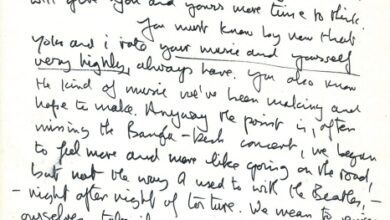 will give you and yours more time to think.
You must know by now that
Yoko and i rate your music and yourself
very highly, always have. You also know
the kind of music we've been making and
hope to make. Anyway the point is, after
missing the Bangla-Desh concert, we began
to feel more and more like going on the road,
but not the way I used to with the Beatles, –
– night after night of torture. We mean to enjoy
ourselves, take it